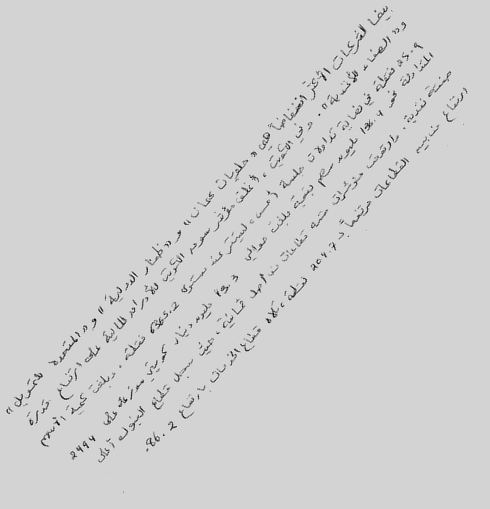 بينما الشركات الأكثر انخفاضاً هي «حلويات عمان» و«ظفار الدولية» و«المتحدة للتمويل»
و«الصفاء للأغذية». وفي الكويت، أغلق مؤشر سوق الكويت للأوراق المالية على ارتفاع قدره
25.9 نقطة في نهاية تداولات جلسة أمس، ليستقر عند مستوى 6865.2 نقطة، وبلغت كمية الأسهم
المتداولة نحو 136.4 مليون سهم بقيمة بلغت حوالي 19.3 مليون دينار كويتي موزعة على 2494
صفقة نقدية. وارتفعت مؤشرات خمسة قطاعات من أصل ثمانية، حيث سجل قطاع البنوك أعلى
ارتفاع من بين القطاعات مرتفعاً بـ 204.7 نقطة، تلاه قطاع الخدمات بارتفاع 86.2.